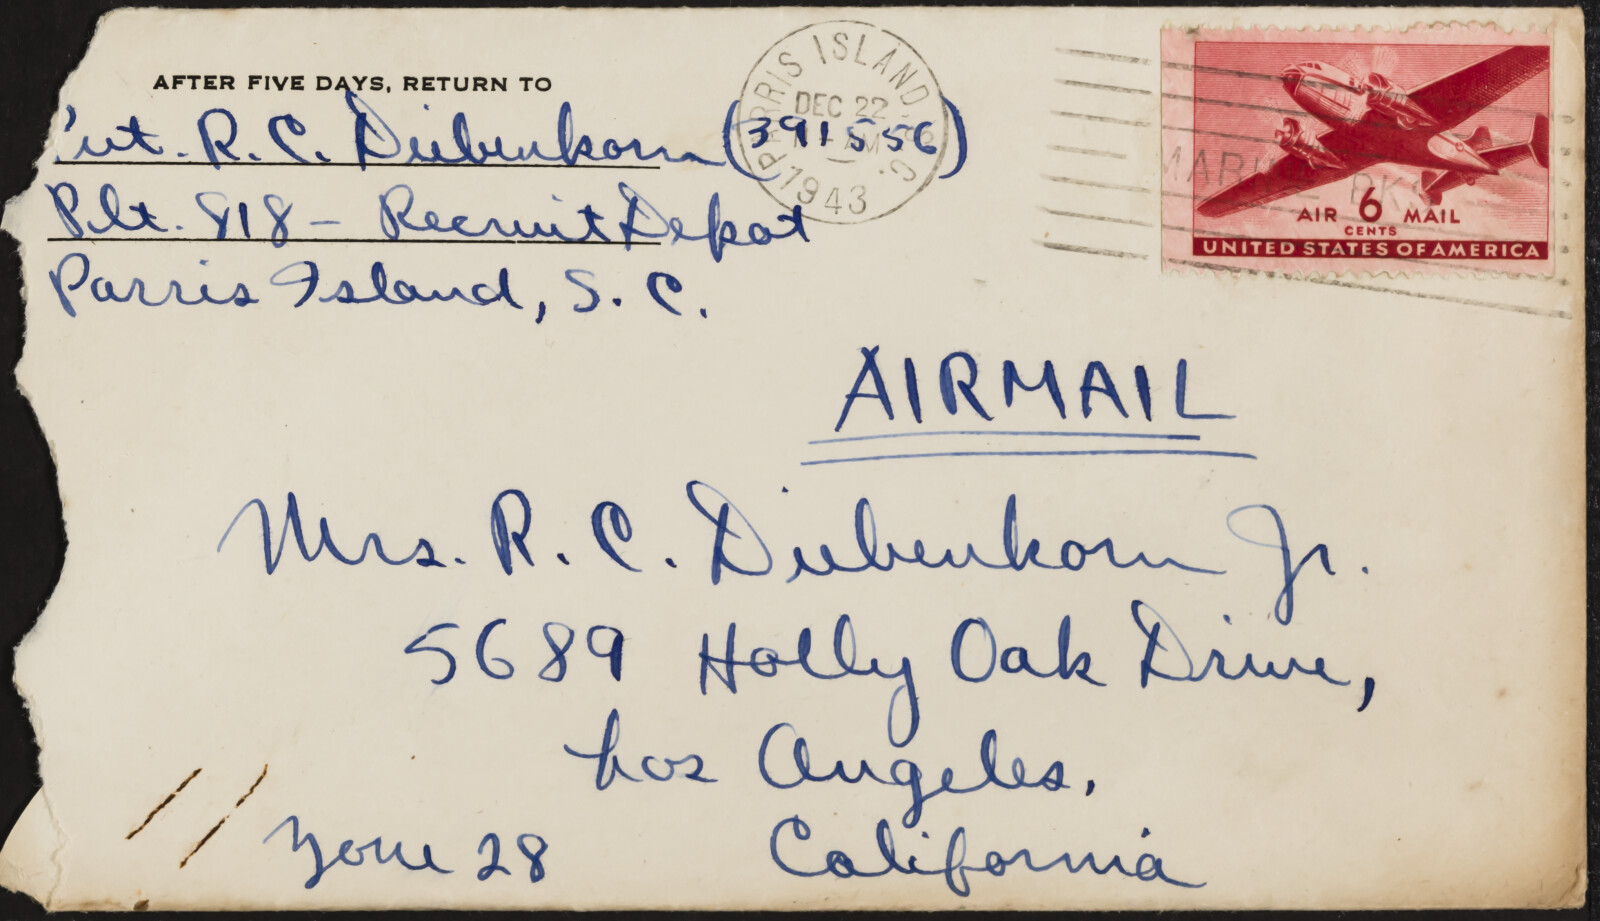 AFTER FIVE DAYS, RETURN TO
Pvt. R. C. Diebenkorn (391556)
Plt. 818 - Recruit Depot
Parris Island, S. C.
PARRIS ISLAND S.C.
DEC 22
AM
1943
AIR 6 MAIL
CENTS
UNITED STATES OF AMERICA
AIRMAIL
Mrs. R. C. Diebenkorn Jr.
5689 Holly Oak Drive,
Los Angeles,
Zone 28 California